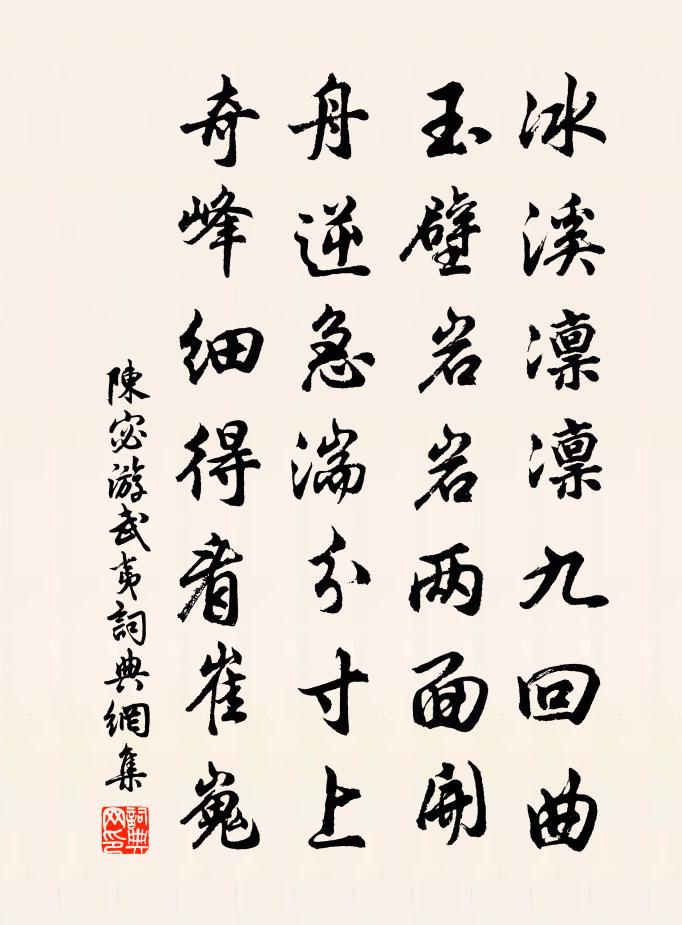 冰溪凛凛九回曲
玉壁岩岩两面開
舟逆急湍分寸上
奇峰细得看崔嵬
陳宓游武夷詞典網集
詞典网印